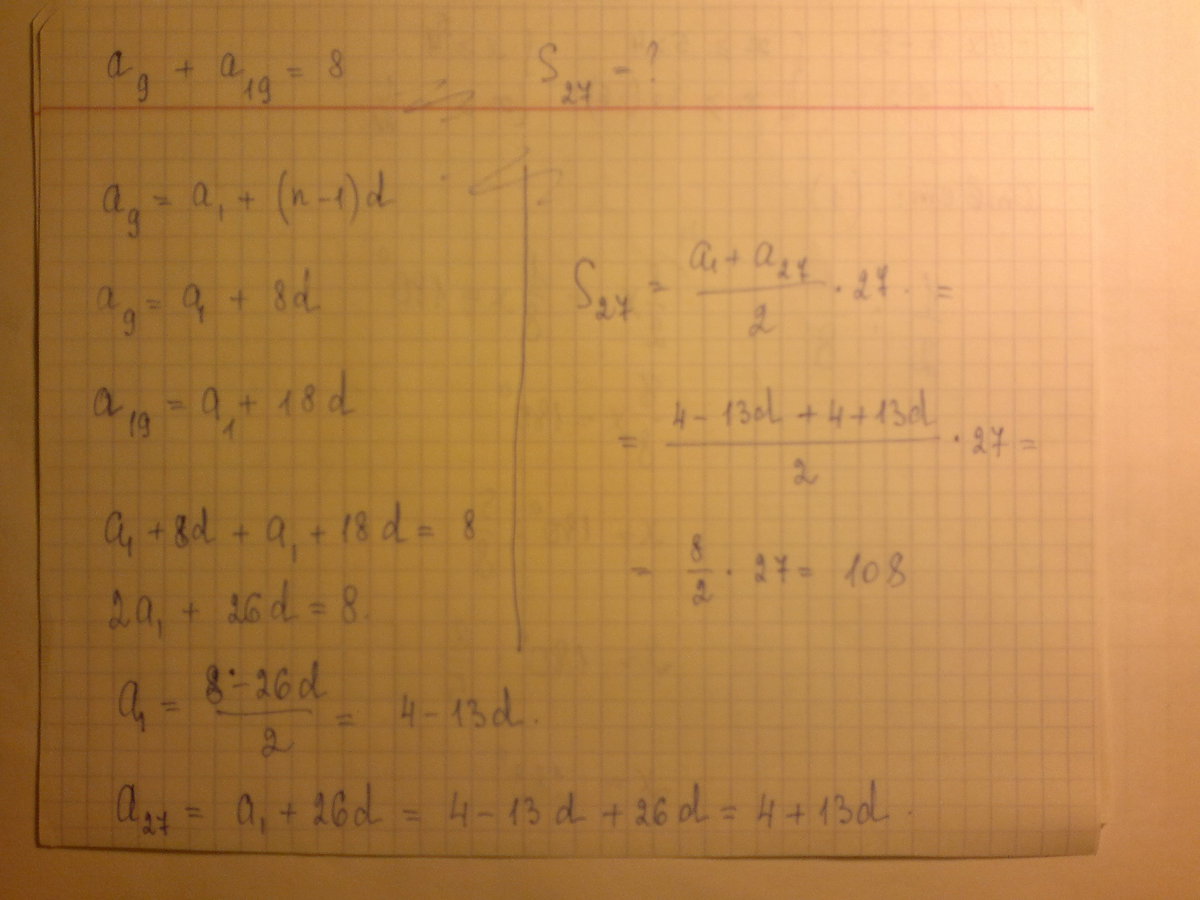 a₉ + a₁₉ = 8 S₂₇ = ?
a₉ = a₁ + (n-1)d
a₉ = a₁ + 8d
a₁₉ = a₁ + 18d
a₁ + 8d + a₁ + 18d = 8
2a₁ + 26d = 8.
a₁ = (8 - 26d)/2 = 4 - 13d.
a₂₇ = a₁ + 26d = 4 - 13d + 26d = 4 + 13d.
S₂₇ = (a₁ + a₂₇)/2 · 27. =
= (4 - 13d + 4 + 13d)/2 · 27 =
= 8/2 · 27 = 108